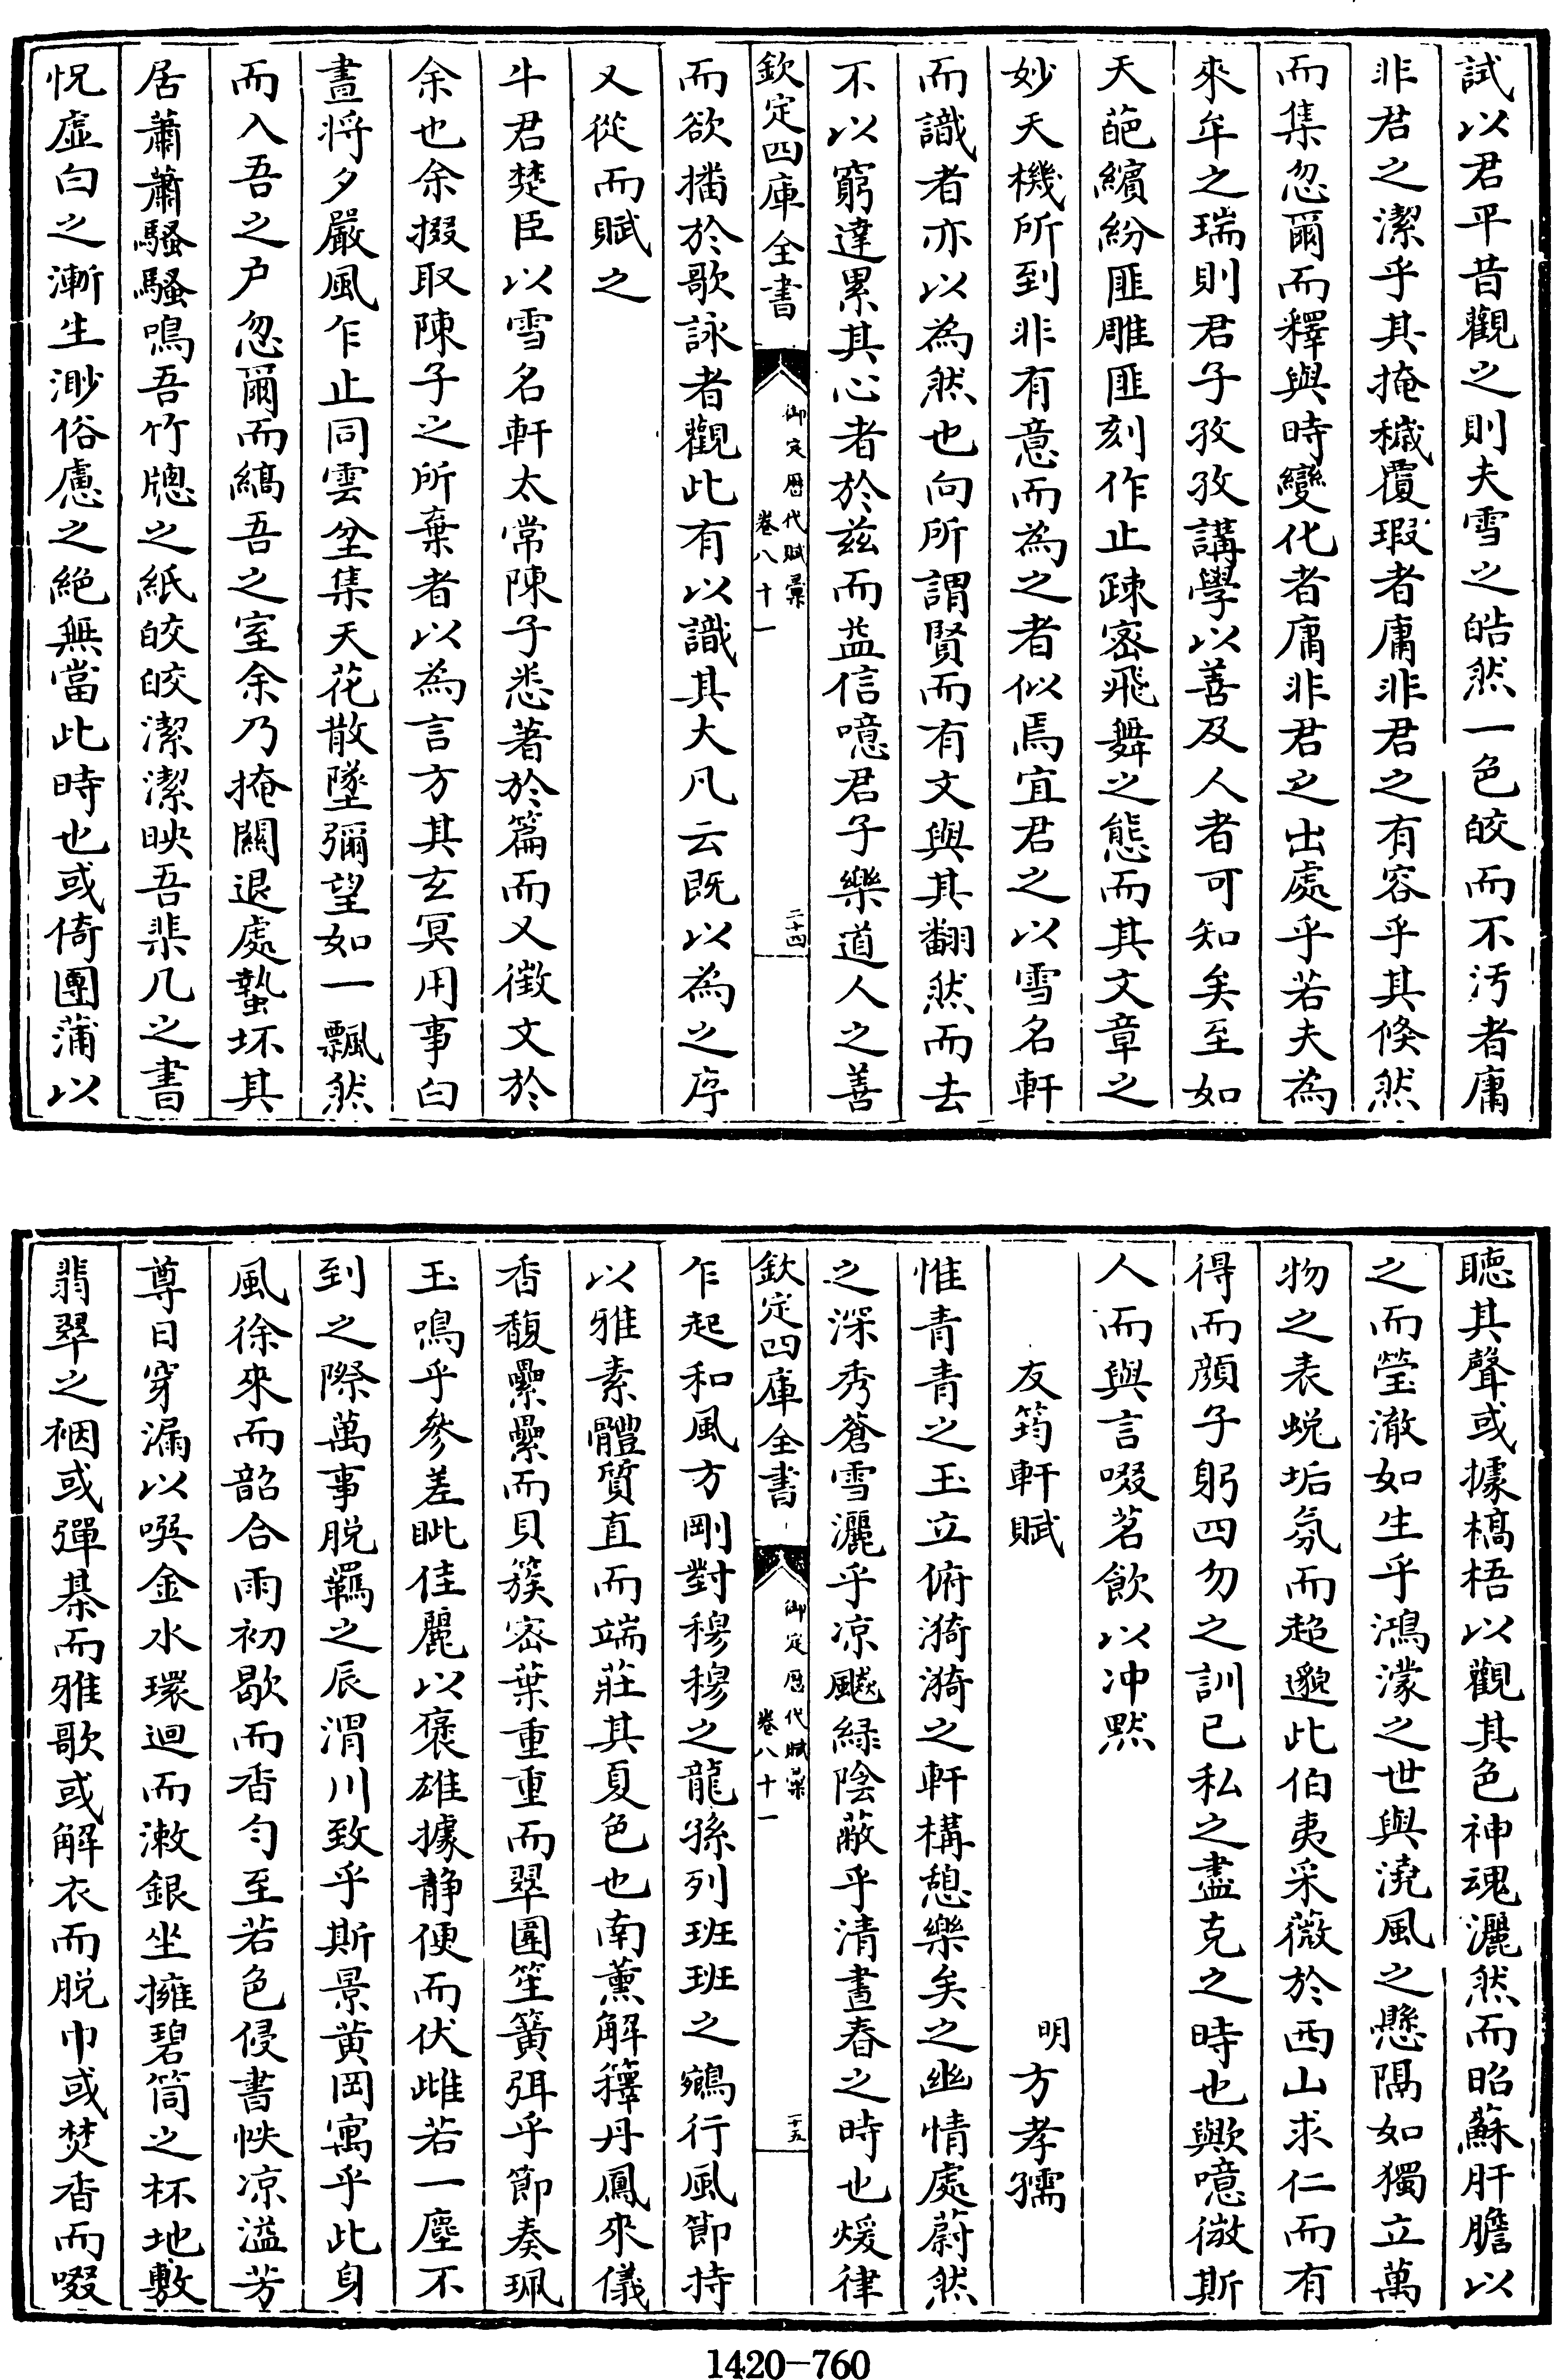 試以君平昔觀之則夫雪之皓然一色皎而不汚者庸
非君之潔乎其掩穢覆瑕者庸非君之有容乎其倐然
而集忽爾而釋與時變化者庸非君之出處乎若夫為
來牟之瑞則君子孜孜講學以善及人者可知矣至如
天葩繽紛匪雕匪刻作止疎宻飛舞之態而其文章之
妙天機所到非有意而為之者似焉宜君之以雪名軒
而識者亦以為然也向所謂賢而有文與其翻然而去
不以窮達累其心者於兹而益信噫君子樂道人之善
欽定四庫全書
御定歴代賦彙
卷八十一
二十四
而欲播於歌詠者觀此有以識其大凡云既以為之序
又從而賦之
牛君楚臣以雪名軒太常陳子悉著於篇而又徵文於
余也余掇取陳子之所棄者以為言方其玄冥用事白
晝將夕嚴風乍止同雲坌集天花散墜彌望如一飄然
而入吾之户忽爾而縞吾之室余乃掩闗退處蟄坏其
居蕭蕭騷騷鳴吾竹牕之紙皎皎潔潔映吾棐几之書
怳虚白之漸生渺俗慮之絶無當此時也或倚團蒲以
聽其聲或據槁梧以觀其色神魂灑然而昭蘇肝膽以
之而瑩澈如生乎鴻濛之世與澆風之懸隔如獨立萬
物之表蜕垢氛而超邈此伯夷采薇於西山求仁而有
得而顔子躬四勿之訓已私之盡克之時也歟噫微斯
人而與言啜茗飲以冲黙
友筠軒賦
明方孝孺
惟青青之玉立俯漪漪之軒構憩樂矣之幽情處蔚然
之深秀蒼雪灑乎凉飇緑陰蔽乎清晝春之時也煖律
欽定四庫全書
御定歴代賦彙
卷八十一
二十五
乍起和風方剛對穆穆之龍孫列班班之鵷行風節持
以雅素體質直而端莊其夏色也南薰解籜丹鳳來儀
香馥纍纍而貝簇宻葉重重而翠圍笙簧弭乎節奏珮
玉鳴乎參差眦佳麗以褒雄據静便而伏雌若一塵不
到之際萬事脱羈之辰渭川致乎斯景黄岡寓乎此身
風徐來而韶合雨初歇而香勻至若色侵書帙凉溢芳
尊日穿漏以噀金水環迴而漱銀坐擁碧筒之杯地敷
翡翠之裀或彈棊而雅歌或解衣而脱巾或焚香而啜
1420-760